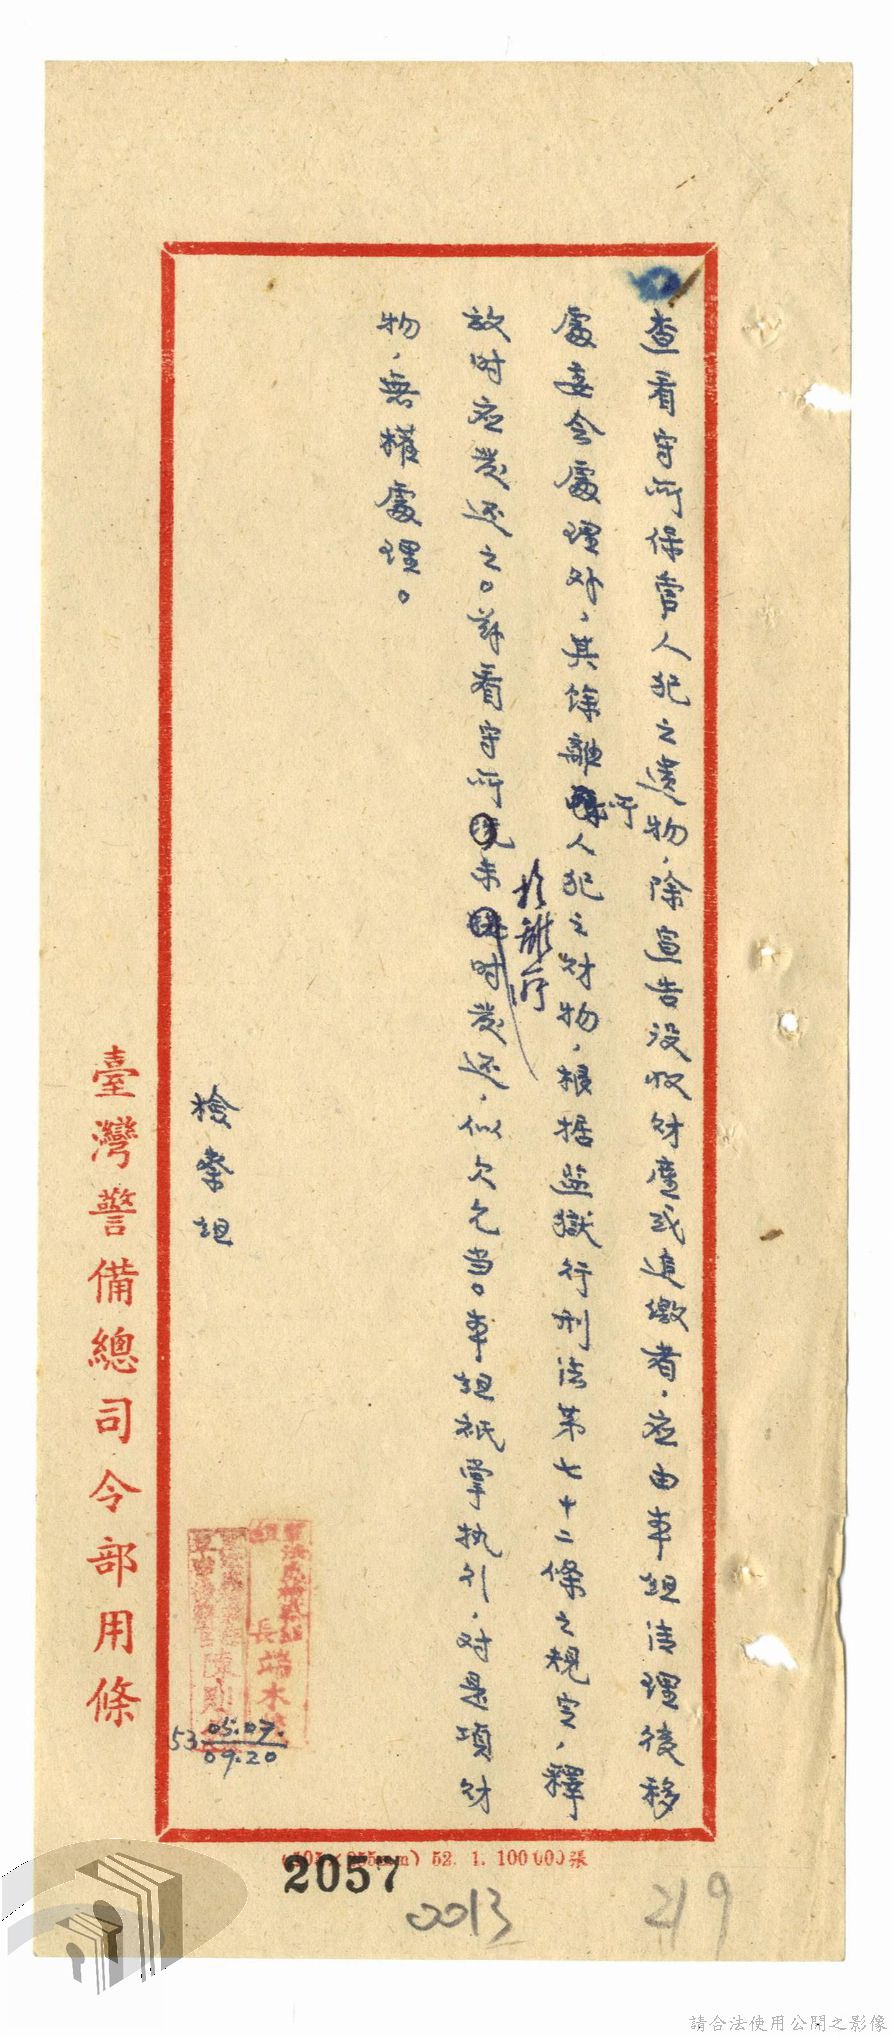 查看守所保管人犯之遺物，除宣告沒收財產或追繳者，应由本組清理後移
處委会處理外，其餘離所人犯之財物，根据監獄行刑法第七十二條之規定，釋
放時应發还之。該看守所未於離所時發还，似欠允当。本組祇掌执行，对是項財
物，無權處理。
檢察組
組長端木
53 05.07. 09.20
臺灣警備總司令部用條
52. 1. 100000張
2057
0013
219
請合法使用公開之影像